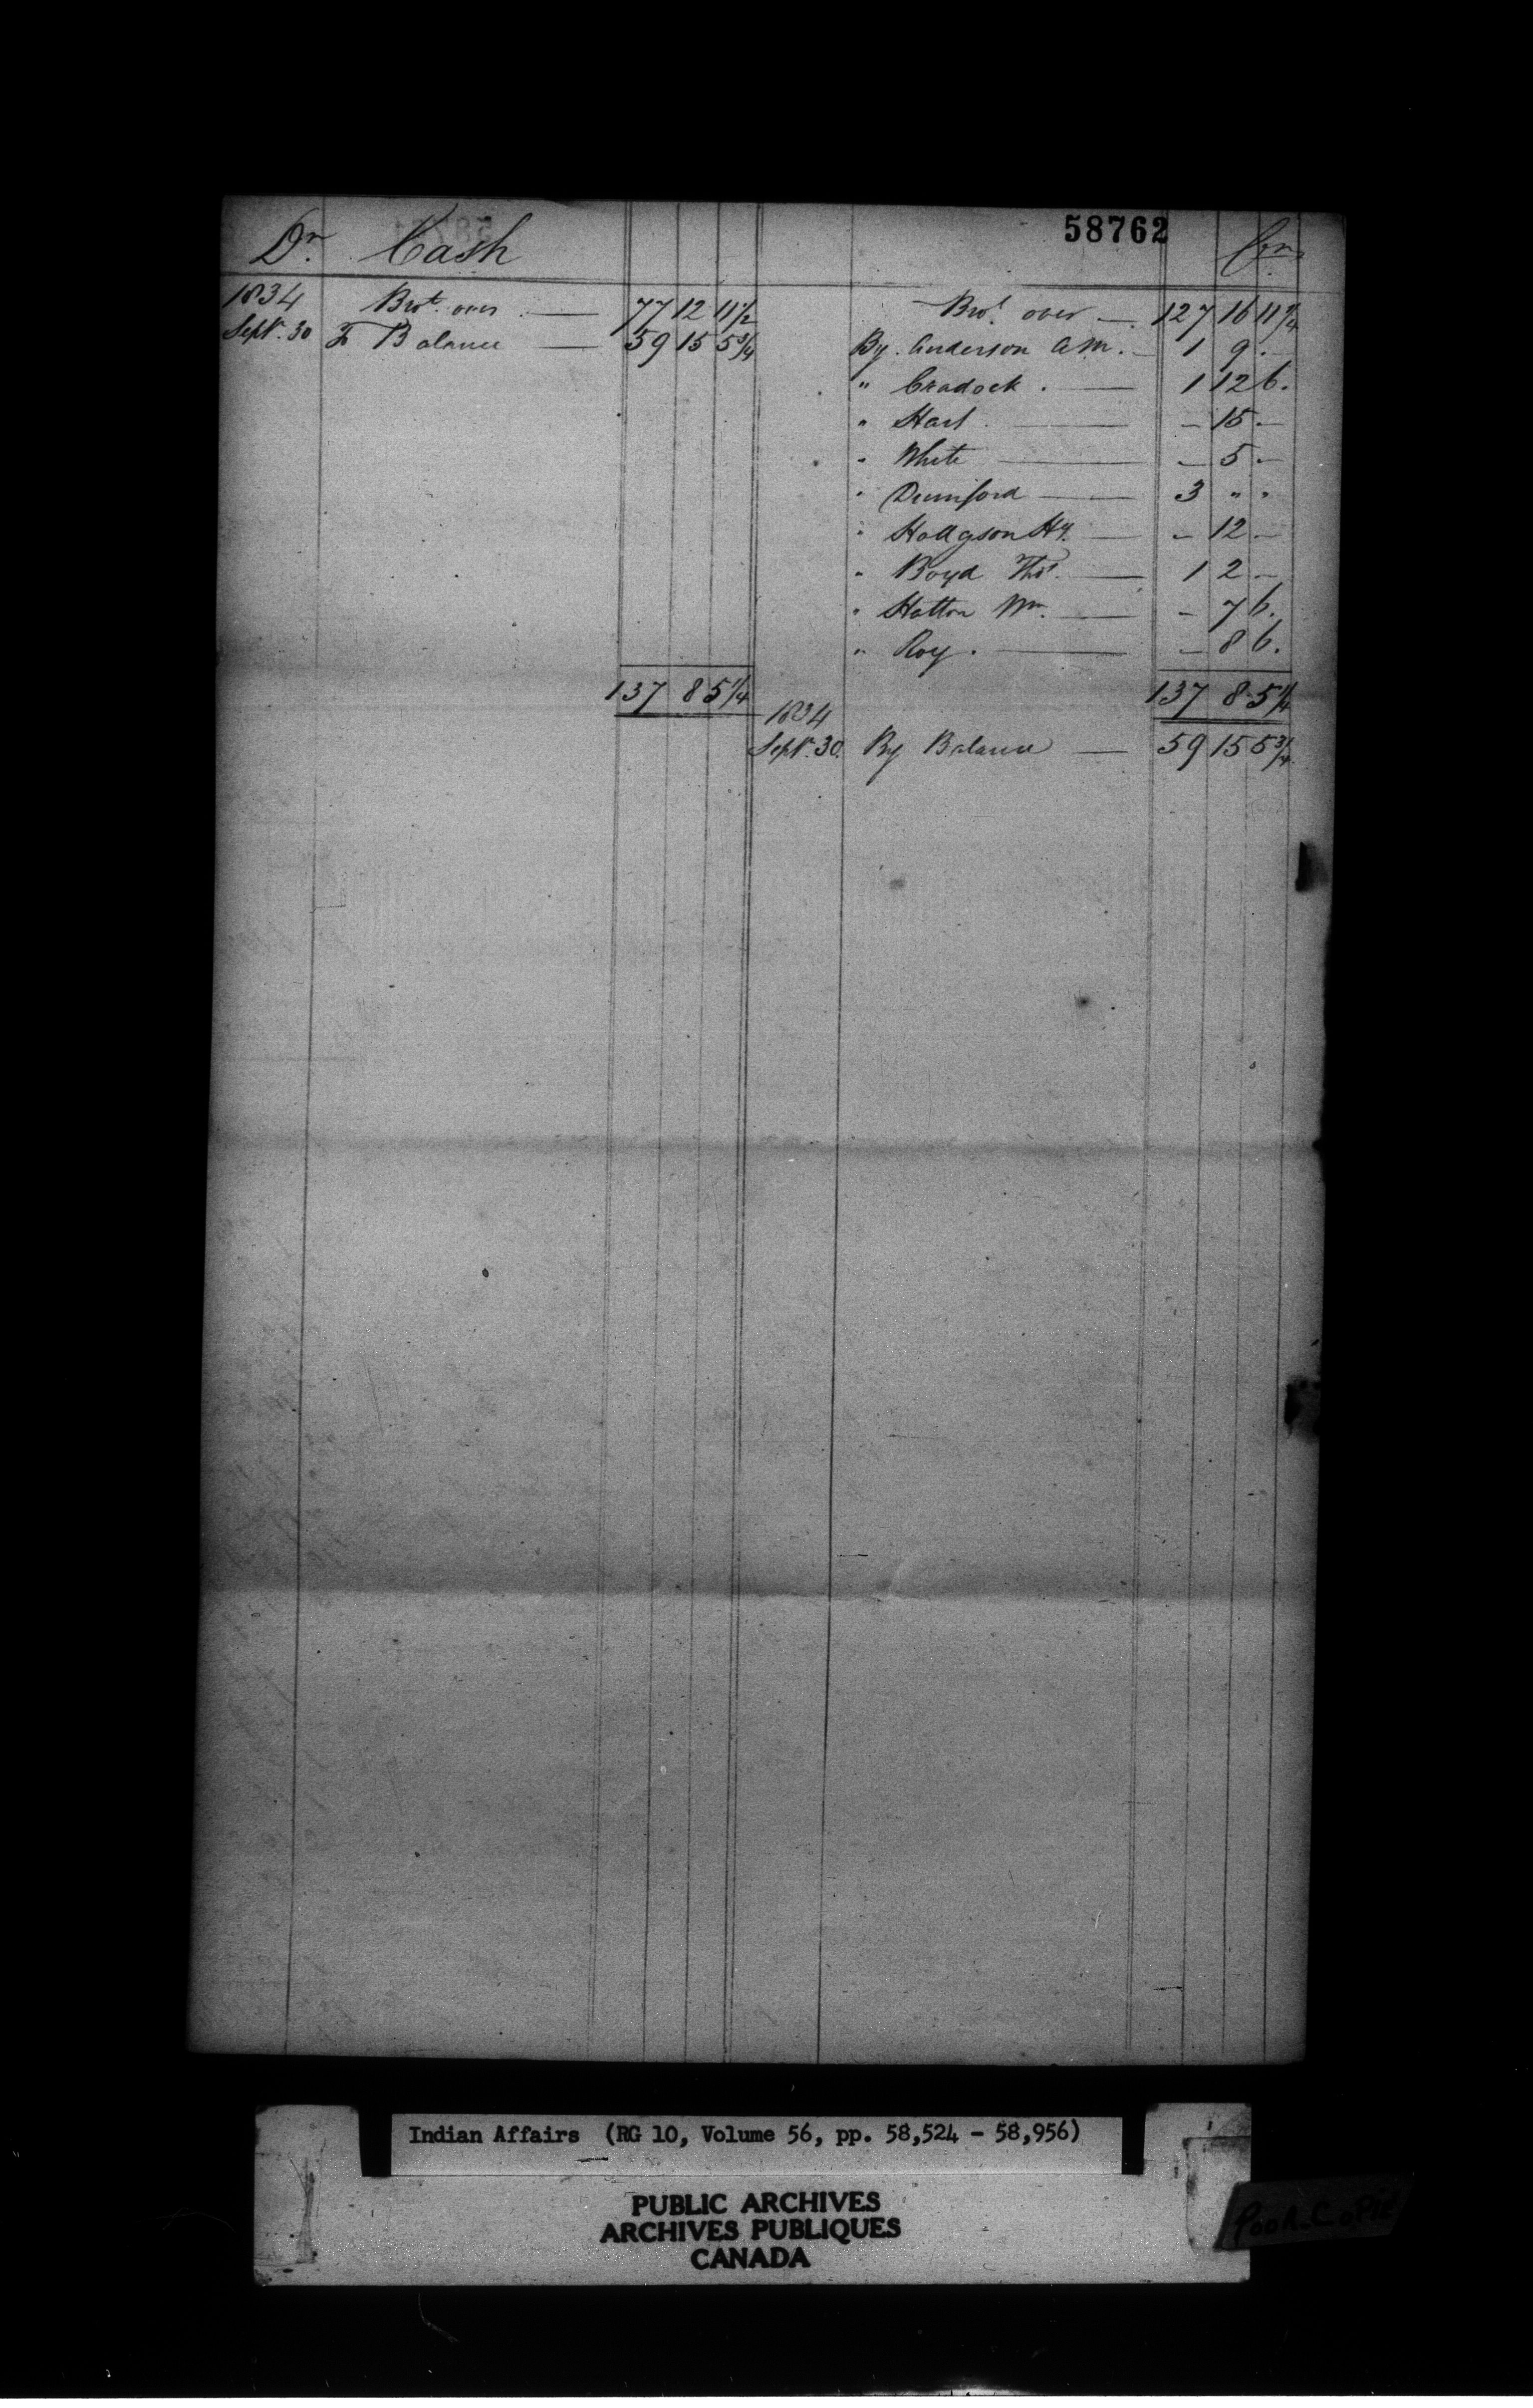 58762
Dr. Cash Cr.
1834 Brot. over 77 12 11 1/2
Septr. 30 To Balance 59 15 5 3/4
137 8 5 1/4
Brot. over 127 16 11 1/4
By Anderson A M. 1 9 -
" Cradock 1 12 6.
" Hart - 15 -
" White - 5 -
" Durnford 3 " "
" Hodgson Hy. - 12 -
" Boyd Thos. 1 2 -
" Hatton Wm. - 7 6.
" Roy. - 8 6.
137 8 5 1/4
1834
Septr. 30. By Balance 59 15 5 3/4
Indian Affairs (RG 10, Volume 56, pp. 58,524 - 58,956)
PUBLIC ARCHIVES
ARCHIVES PUBLIQUES
CANADA